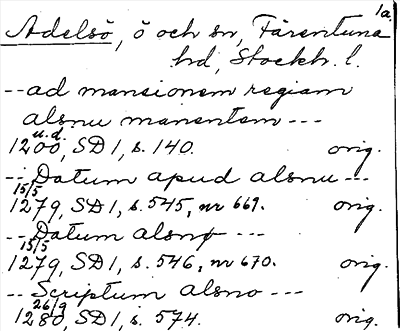 1a
Adelsö, ö och sn, Färentuna
hd, Stockh. l.
--ad mansionem regiam
alsnu manentem ---
u.d.
1200, SD 1, s. 140. orig.
-- Datum apud alsnu ---
15/5
1279, SD 1, s. 545, nr 669. orig.
-- Datum alsnø ---
15/5
1279, SD 1, s. 546, nr 670. orig.
-- Scriptum alsno ---
26/9
1280, SD 1, s. 574. orig.